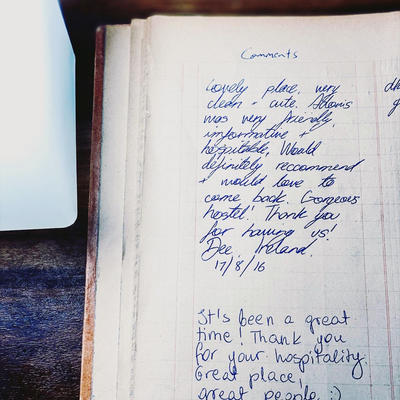 Comments
Lovely place, very
clean + cute. Adonis
was very friendly,
imformative +
hospitable, Would
definitely reccommend
+ would love to
come back. Gorgeous
hostel! Thank you
for having us!
Dee, Ireland.
17/8/16
It's been a great
time! Thank you
for your hospitality.
Great place,
great people :)